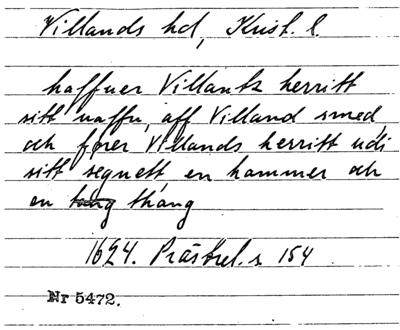 Villands hd, Krist. l.
haffuer Villantz herritt
sitt naffn, aff Villand smed,
och fører Villands herritt udi
sitt segnett en hammer och
en tång thang
1624. Prästrel. s 154
Nr 5472.